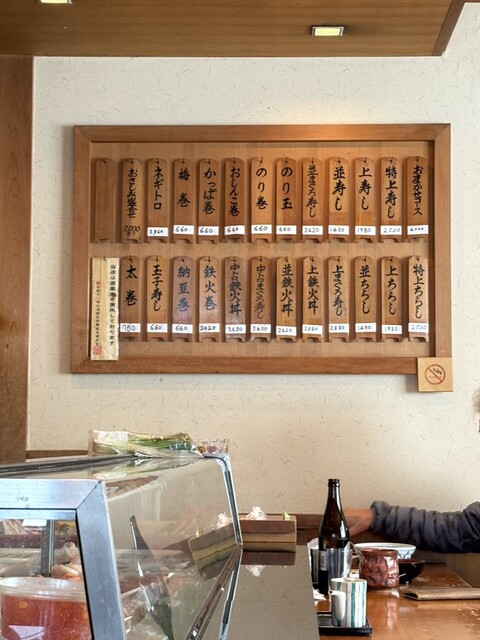 おまかせコース
4000
特上寿し
2530
上寿し
1980
並寿し
1430
並まぐろ寿し
2420
のり玉
660
のり巻
660
おしんこ巻
660
かっぱ巻
660
梅巻
660
ネギトロ
おさしみ盛合せ
特上ちらし
上ちらし
1980
並ちらし
1430
上まぐろ寿し
上鉄火丼
並鉄火丼
2420
中トロまぐろ寿し
3630
中トロ鉄火丼
3630
鉄火巻
2420
納豆巻
660
玉子寿し
660
太巻